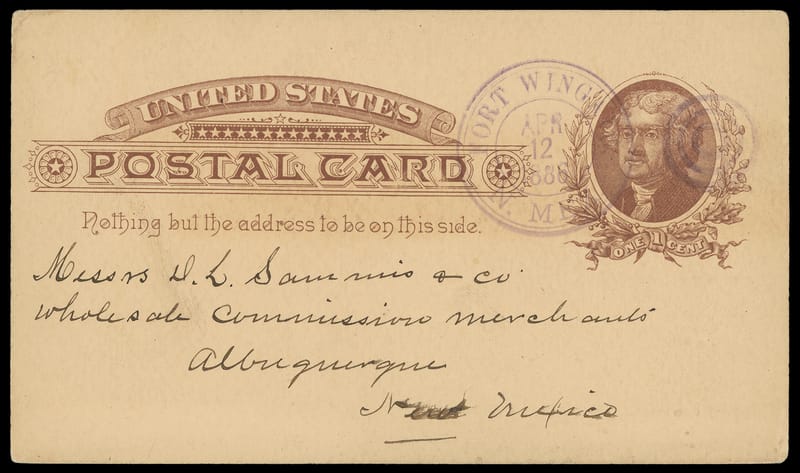 UNITED STATES
POSTAL CARD
Nothing but the address to be on this side.
ONE 1 CENT
FORT WING
APR
12
N. M
Messrs D. L. Sammis & co
wholesale commission merchants
Albuquerque
New Mexico